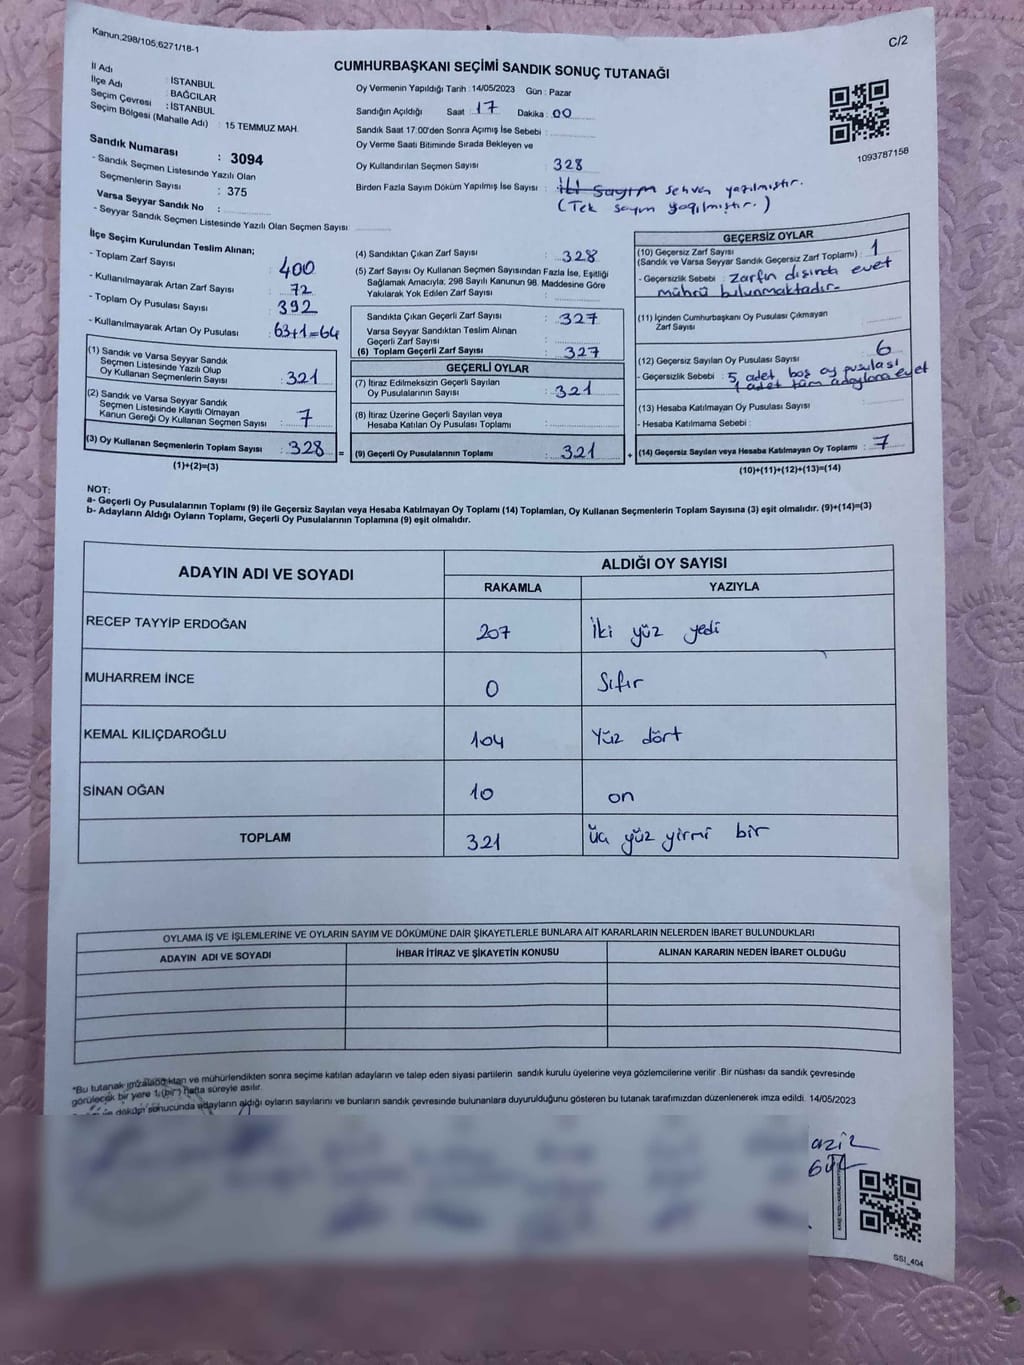 Kanun,298/105,6271/18-1
C/2
CUMHURBAŞKANI SEÇİMİ SANDIK SONUÇ TUTANAĞI
İl Adı : İSTANBUL
İlçe Adı : BAĞCILAR
Seçim Çevresi : İSTANBUL
Seçim Bölgesi (Mahalle Adı) : 15 TEMMUZ MAH.
Sandık Numarası : 3094
- Sandık Seçmen Listesinde Yazılı Olan
Seçmenlerin Sayısı : 375
Varsa Seyyar Sandık No :
- Seyyar Sandık Seçmen Listesinde Yazılı Olan Seçmen Sayısı
Oy Vermenin Yapıldığı Tarih : 14/05/2023 Gün : Pazar
Sandığın Açıldığı Saat : 17 Dakika : 00
Sandık Saat 17:00'den Sonra Açımış İse Sebebi :
Oy Verme Saati Bitiminde Sırada Bekleyen ve
Oy Kullandırılan Seçmen Sayısı : 328
Birden Fazla Sayım Döküm Yapılmış İse Sayısı : İki Sayım sehven yazılmıştır.
(Tek sayım yapılmıştır.)
1093787158
İlçe Seçim Kurulundan Teslim Alınan;
- Toplam Zarf Sayısı : 400
- Kullanılmayarak Artan Zarf Sayısı : 72
- Toplam Oy Pusulası Sayısı : 392
- Kullanılmayarak Artan Oy Pusulası : 63+1=64
(1) Sandık ve Varsa Seyyar Sandık
Seçmen Listesinde Yazılı Olup
Oy Kullanan Seçmenlerin Sayısı : 321
(2) Sandık ve Varsa Seyyar Sandık
Seçmen Listesinde Kayıtlı Olmayan
Kanun Gereği Oy Kullanan Seçmen Sayısı : 7
(3) Oy Kullanan Seçmenlerin Toplam Sayısı : 328 =
(1)+(2)=(3)
(4) Sandıktan Çıkan Zarf Sayısı : 328
(5) Zarf Sayısı Oy Kullanan Seçmen Sayısından Fazla İse, Eşitliği
Sağlamak Amacıyla; 298 Sayılı Kanunun 98. Maddesine Göre
Yakılarak Yok Edilen Zarf Sayısı :
Sandıkta Çıkan Geçerli Zarf Sayısı : 327
Varsa Seyyar Sandıktan Teslim Alınan
Geçerli Zarf Sayısı :
(6) Toplam Geçerli Zarf Sayısı : 327
GEÇERLİ OYLAR
(7) İtiraz Edilmeksizin Geçerli Sayılan
Oy Pusulalarının Sayısı : 321
(8) İtiraz Üzerine Geçerli Sayılan veya
Hesaba Katılan Oy Pusulası Toplamı :
(9) Geçerli Oy Pusulalarının Toplamı : 321 +
GEÇERSİZ OYLAR
(10) Geçersiz Zarf Sayısı
(Sandık ve Varsa Seyyar Sandık Geçersiz Zarf Toplamı) : 1
- Geçersizlik Sebebi : Zarfın dışında evet
mührü bulunmaktadır.
(11) İçinden Cumhurbaşkanı Oy Pusulası Çıkmayan
Zarf Sayısı :
(12) Geçersiz Sayılan Oy Pusulası Sayısı : 6
- Geçersizlik Sebebi : 5 adet boş oy pusulası
1 adet tüm adaylara evet
(13) Hesaba Katılmayan Oy Pusulası Sayısı :
- Hesaba Katılmama Sebebi :
(14) Geçersiz Sayılan veya Hesaba Katılmayan Oy Toplamı : 7
(10)+(11)+(12)+(13)=(14)
NOT:
a- Geçerli Oy Pusulalarının Toplamı (9) ile Geçersiz Sayılan veya Hesaba Katılmayan Oy Toplamı (14) Toplamları, Oy Kullanan Seçmenlerin Toplam Sayısına (3) eşit olmalıdır. (9)+(14)=(3)
b- Adayların Aldığı Oyların Toplamı, Geçerli Oy Pusulalarının Toplamına (9) eşit olmalıdır.
ADAYIN ADI VE SOYADI ALDIĞI OY SAYISI
RAKAMLA YAZIYLA
RECEP TAYYİP ERDOĞAN 207 İki yüz yedi
MUHARREM İNCE 0 Sıfır
KEMAL KILIÇDAROĞLU 104 Yüz dört
SİNAN OĞAN 10 on
TOPLAM 321 Üç yüz yirmi bir
OYLAMA İŞ VE İŞLEMLERİNE VE OYLARIN SAYIM VE DÖKÜMÜNE DAİR ŞİKAYETLERLE BUNLARA AİT KARARLARIN NELERDEN İBARET BULUNDUKLARI
ADAYIN ADI VE SOYADI İHBAR İTİRAZ VE ŞİKAYETİN KONUSU ALINAN KARARIN NEDEN İBARET OLDUĞU
*Bu tutanak imzalandıktan ve mühürlendikten sonra seçime katılan adayların ve talep eden siyasi partilerin sandık kurulu üyelerine veya gözlemcilerine verilir .Bir nüshası da sandık çevresinde
görülecek bir yere 1 (bir) hafta süreyle asılır.
döküm sonucunda adayların aldığı oyların sayılarını ve bunların sandık çevresinde bulunanlara duyurulduğunu gösteren bu tutanak tarafımızdan düzenlenerek imza edildi. 14/05/2023
SSI_404